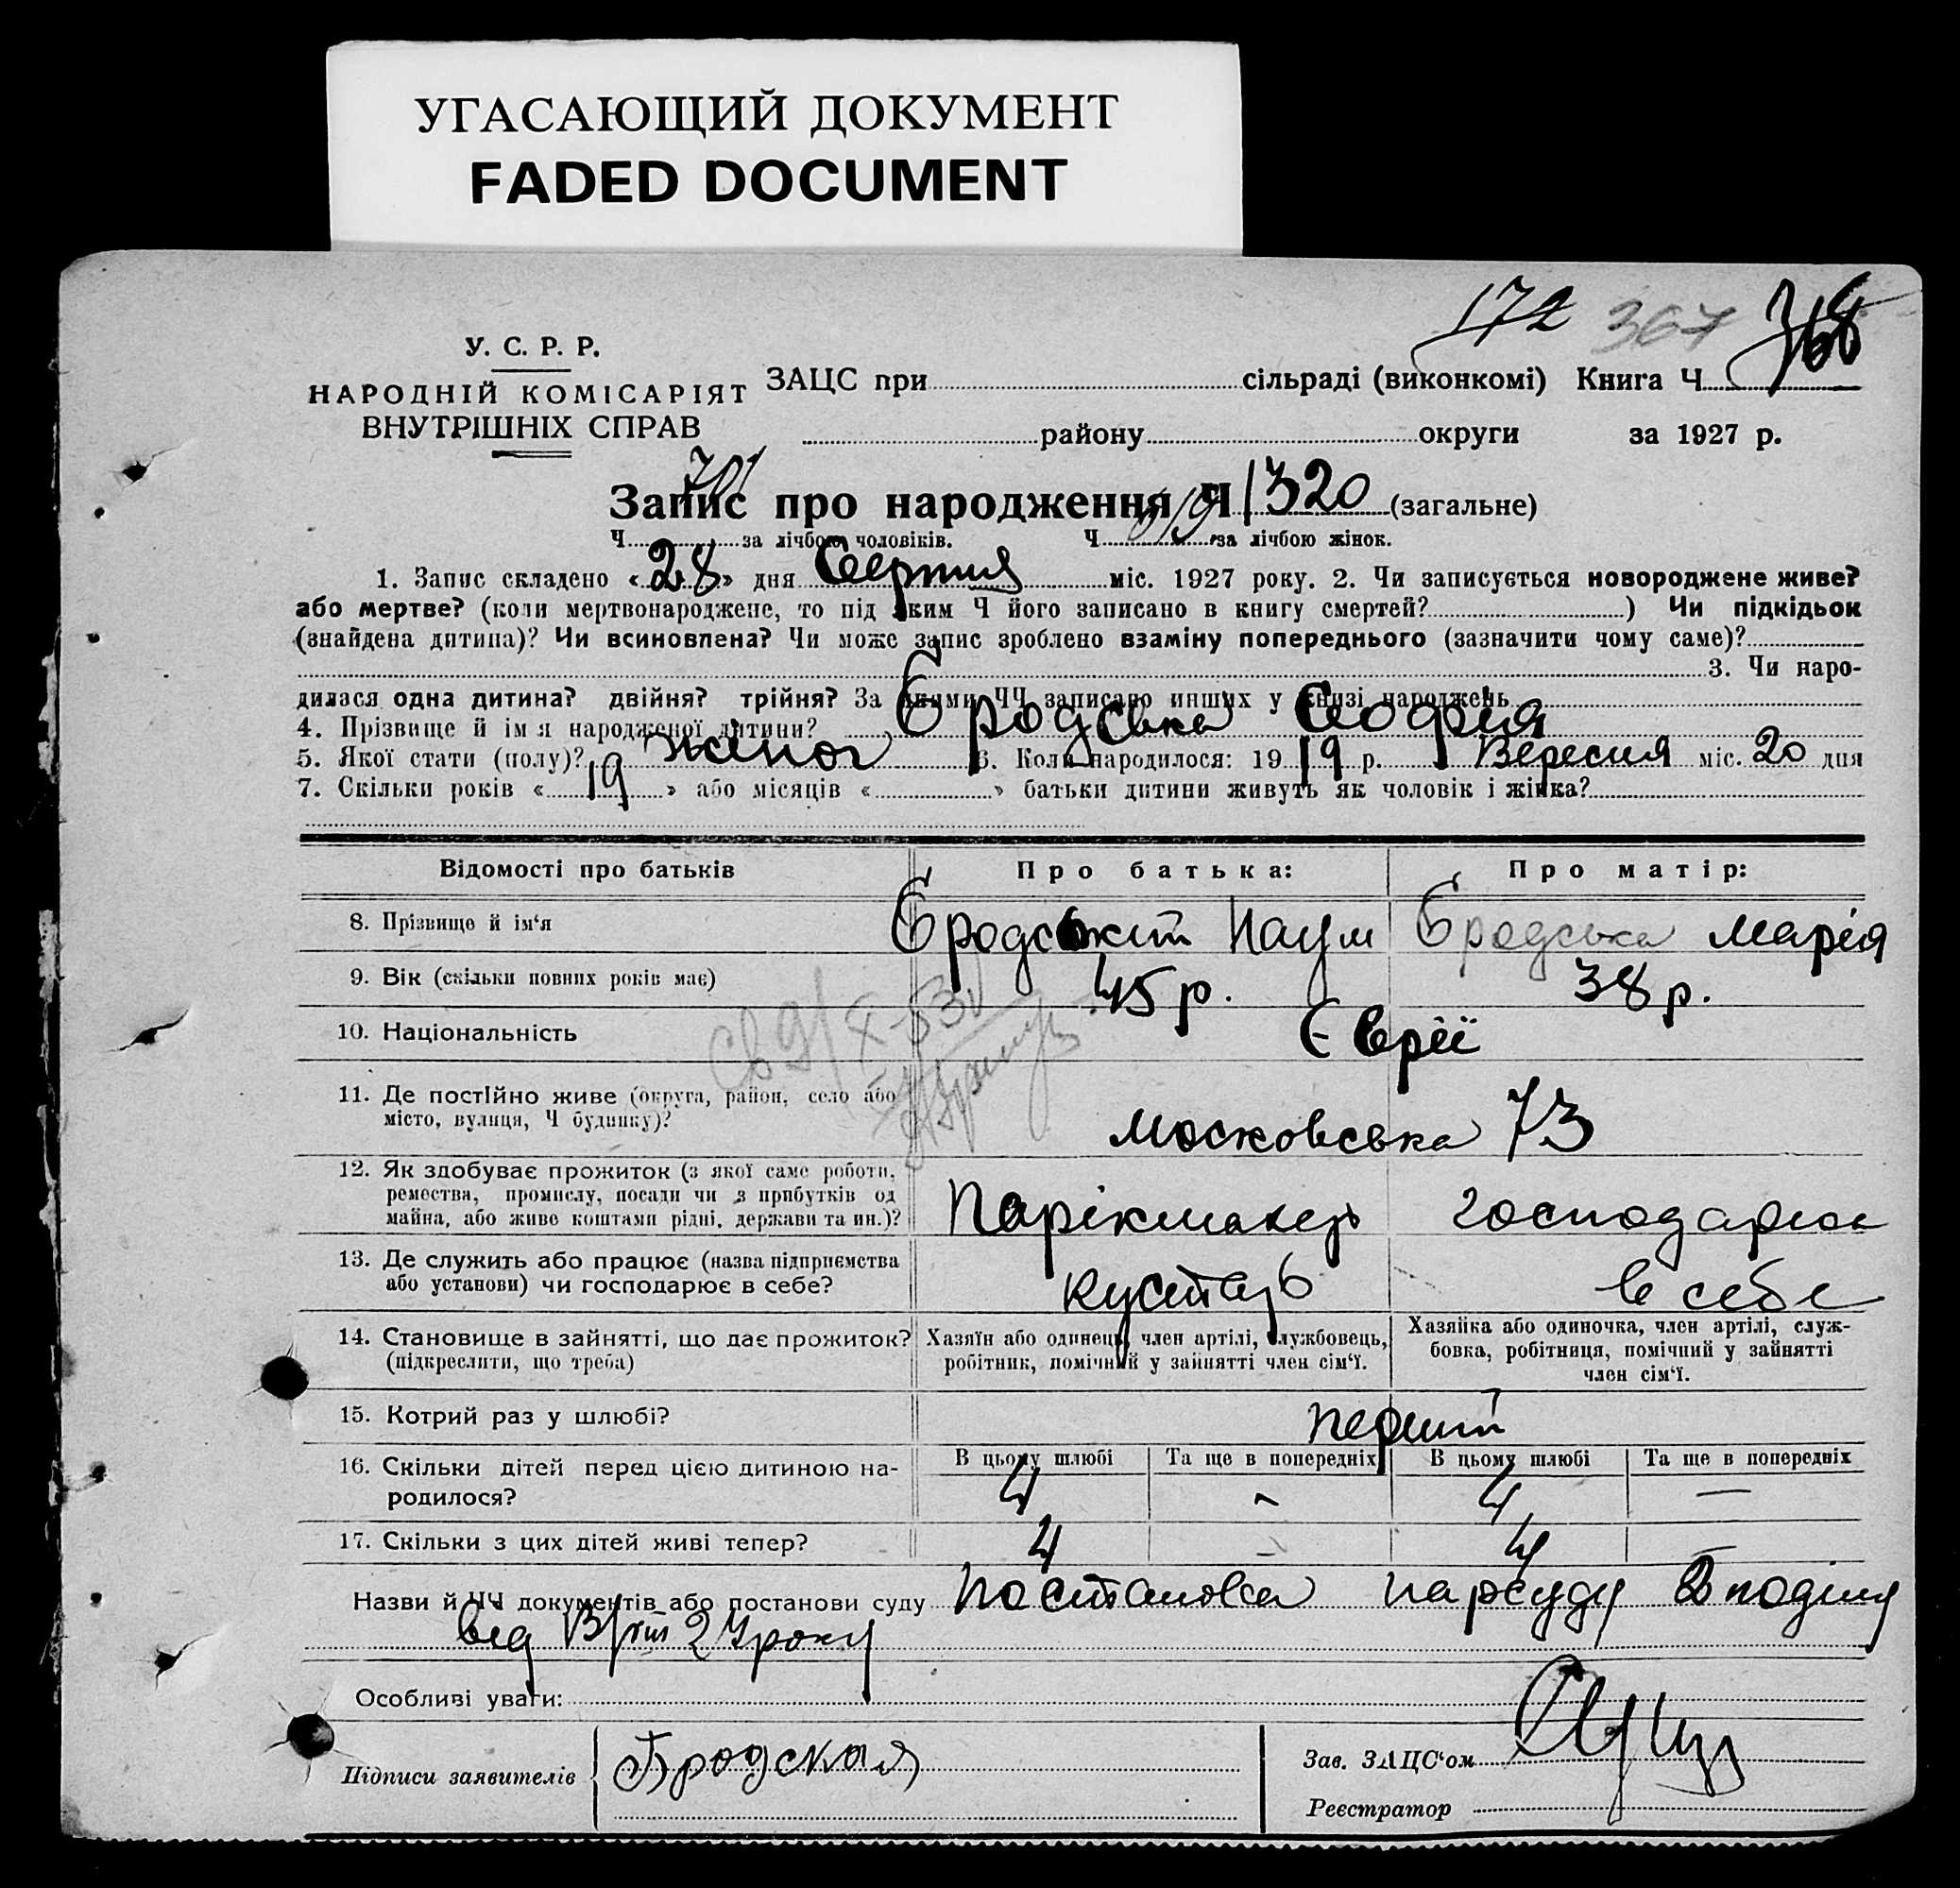 УГАСАЮЩИЙ ДОКУМЕНТ
FADED DOCUMENT
172 367 368
У. С. Р. Р.
НАРОДНІЙ КОМІСАРІЯТ
ВНУТРІШНІХ СПРАВ
ЗАЦС при сільраді (виконкомі) Книга Ч
району округи за 1927 р.
701
Запис про народження Ч 1320 (загальне)
Ч за лічбою чоловіків. Ч 619 за лічбою жінок.
1. Запис складено «28» дня Серпня міс. 1927 року. 2. Чи записується новороджене живе?
або мертве? (коли мертвонароджене, то під яким Ч його записано в книгу смертей? ) Чи підкідьок
(знайдена дитина)? Чи всиновлена? Чи може запис зроблено взаміну попереднього (зазначити чому саме)?
3. Чи наро-
дилася одна дитина? двійня? трійня? За якими ЧЧ записано инших у книзі народжень
4. Прізвище й ім я народженої дитини? Бродська Софія
5. Якої стати (полу)? жіноч 6. Коли народилося: 19 19 р. Вересня міс. 20 дня
7. Скільки років « 19 » або місяців « » батьки дитини живуть як чоловік і жінка?
Відомості про батьків Про батька: Про матір:
8. Прізвище й ім‘я Бродський Наум Бродська Марія
9. Вік (скільки повних років має) 45 р. 38 р.
10. Національність Євреї
11. Де постійно живе (округа, район, село або
місто, вулиця, Ч будинку)? Московська 73
12. Як здобуває прожиток (з якої саме роботи,
ремества, промислу, посади чи з прибутків од
майна, або живе коштами рідні, держави та ин.)? Парікмахер господарює
13. Де служить або працює (назва підприємства
або установи) чи господарює в себе? кустарь в себе
14. Становище в зайнятті, що дає прожиток?
(підкреслити, що треба)
Хазяїн або одинець, член артілі, службовець,
робітник, помічний у зайнятті член сім‘ї.
Хазяйка або одиночка, член артілі, служ-
бовка, робітниця, помічний у зайнятті
член сім‘ї.
15. Котрий раз у шлюбі? перший
В цьому шлюбі Та ще в попередніх В цьому шлюбі Та ще в попередніх
16. Скільки дітей перед цією дитиною на-
родилося? 4 - 4 —
17. Скільки з цих дітей живі тепер? 4 - 4 -
Назви й ЧЧ документів або постанови суду Постанова нарсуду
від року
Особливі уваги:
Підписи заявителів Бродская
Зав. ЗАЦС‘ом
Реєстратор